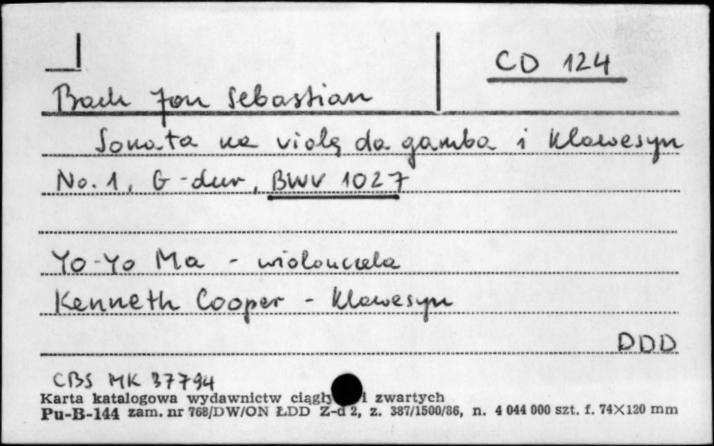 CD 124
Bach Jan Sebastian
Sonata na violę da gamba i klawesyn
No. 1, G-dur, BWV 1027
Yo-Yo Ma - wiolonczela
Kenneth Cooper - klawesyn
DDD
CBS MK 37794
Karta katalogowa wydawnictw ciągły i zwartych
Pu-B-144 zam. nr 768/DW/ON ŁDD Z-d 2, z. 387/1500/86, n. 4 044 000 szt. f. 74×120 mm